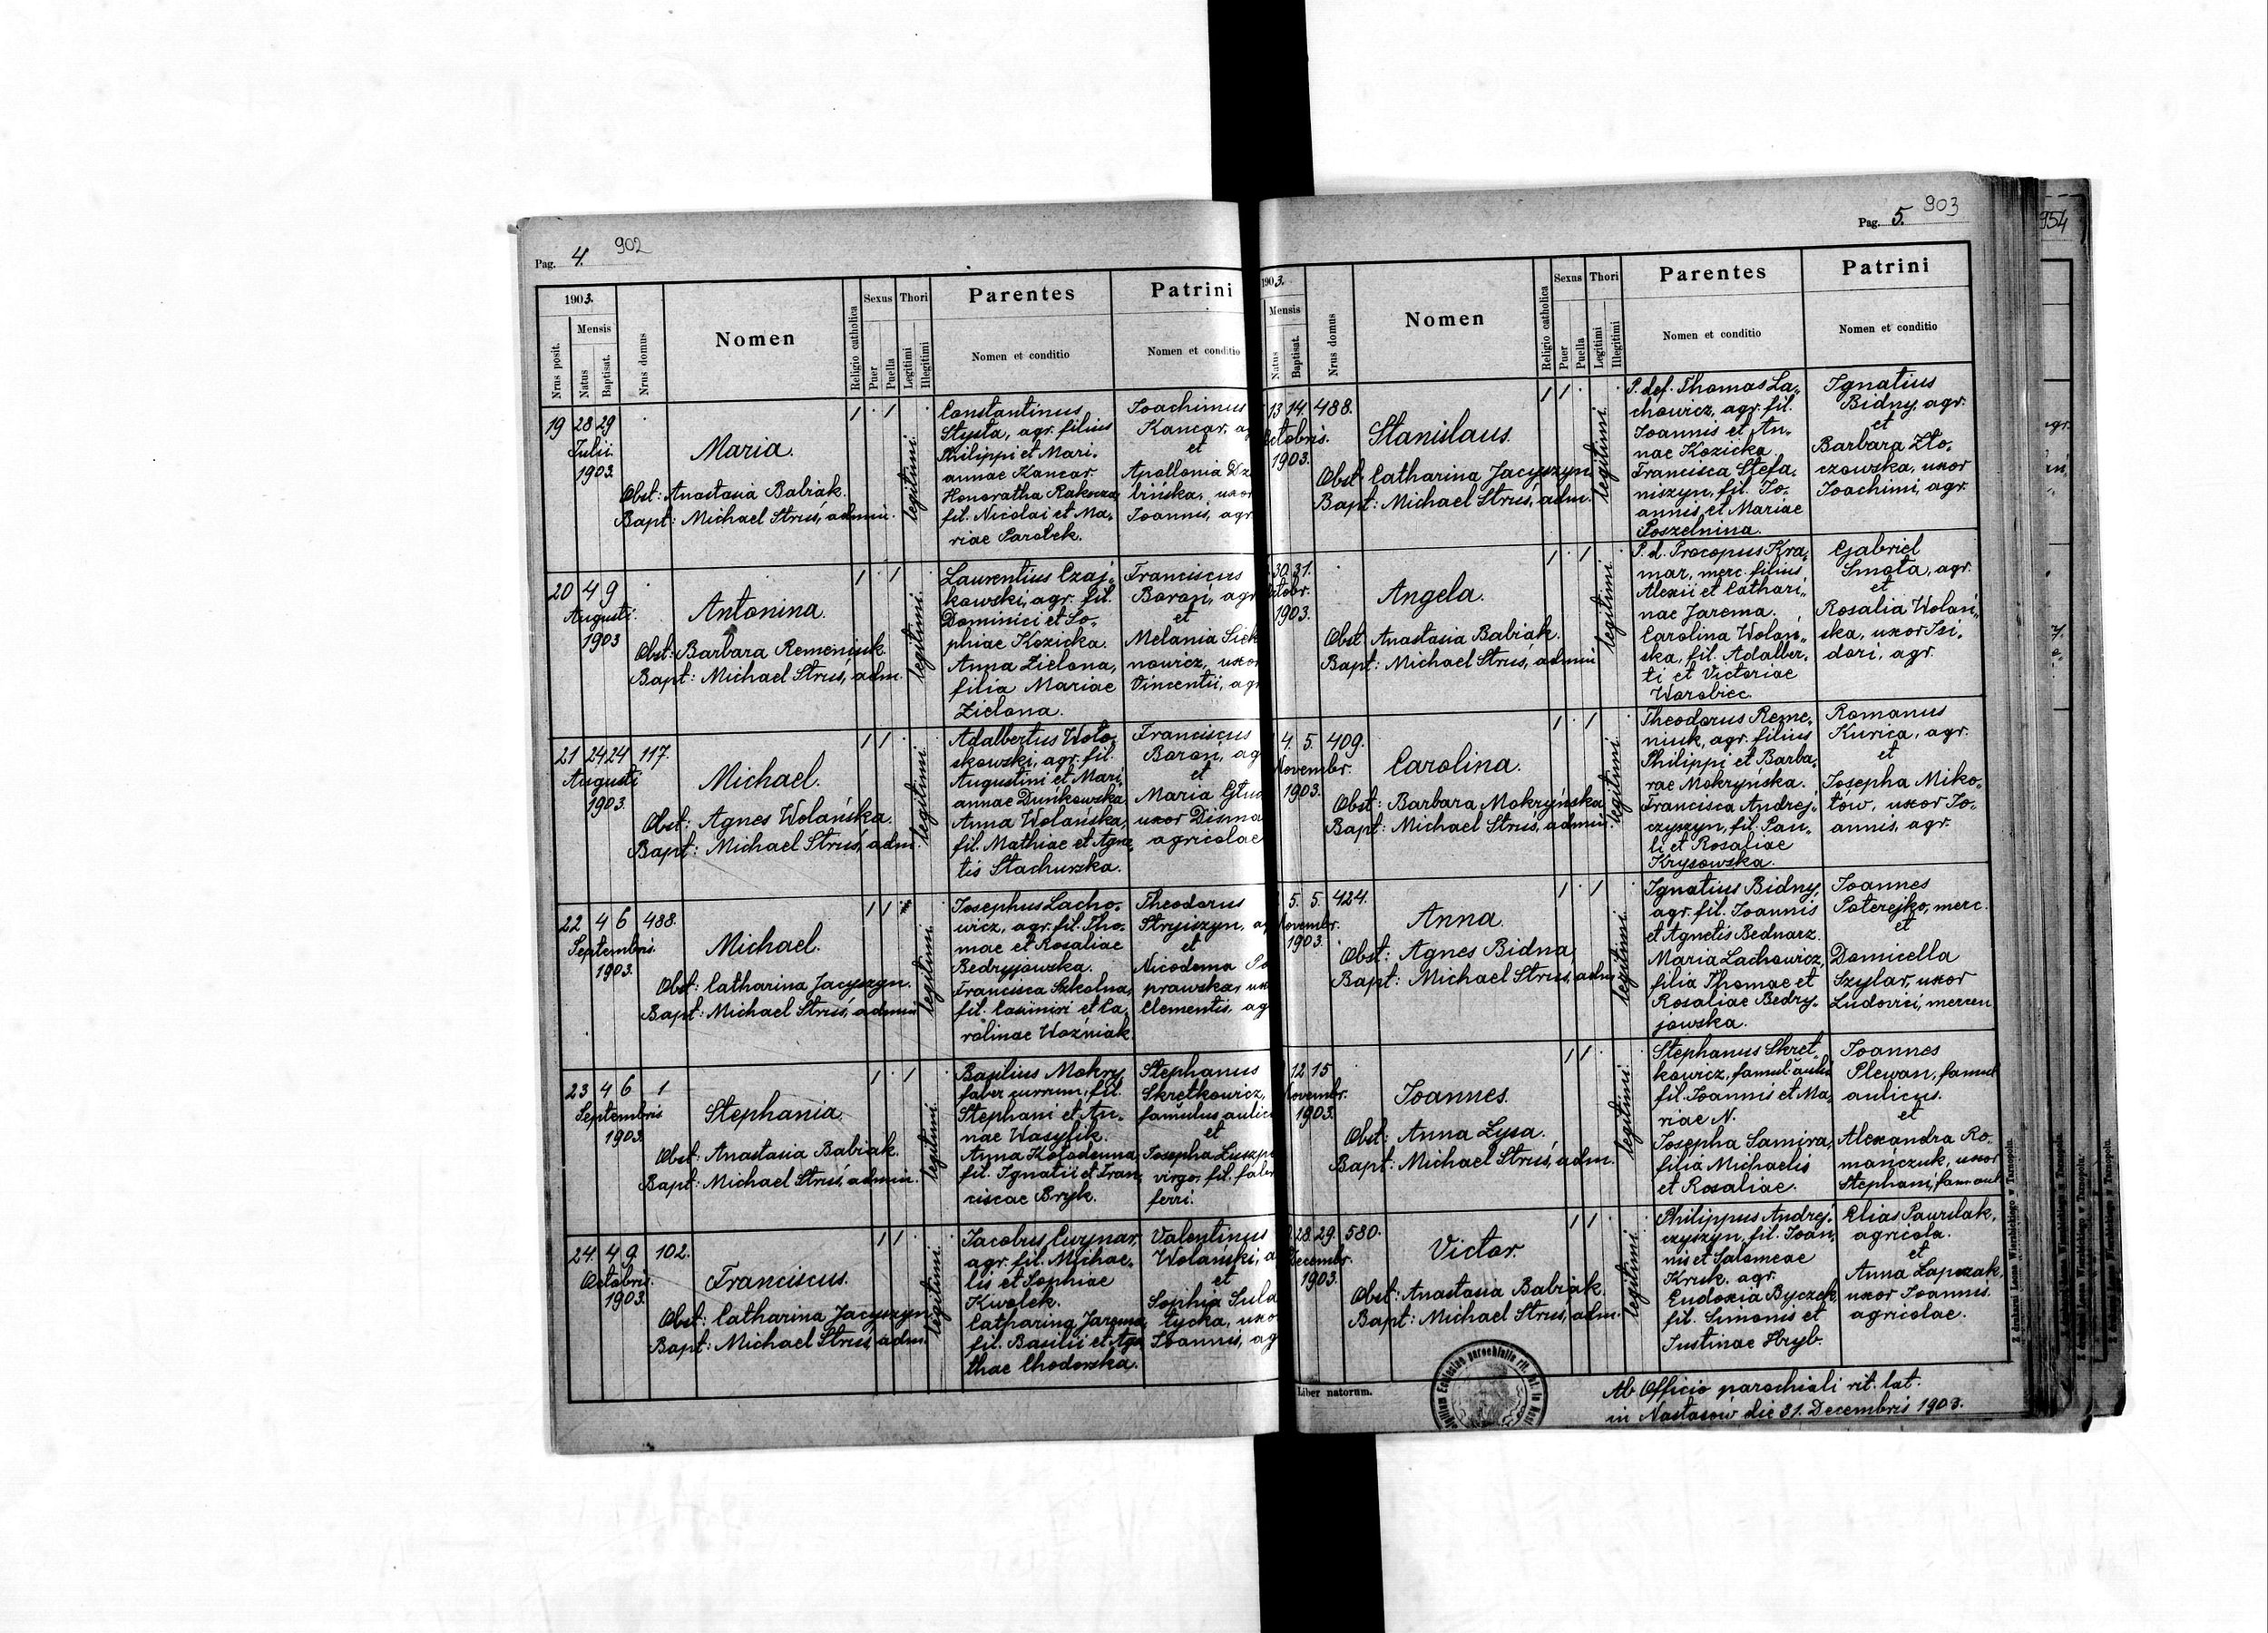 Pag. 4. 902
1903.
Nrus posit.
Mensis
Natus
Baptisat.
Nrus domus
Nomen
Religio catholica
Sexus
Puer
Puella
Thori
Legitimi
Illegitimi
Parentes
Nomen et conditio
Patrini
Nomen et conditio
19 28 29
Julii
1903.
Maria.
Obst: Anastasia Babiak.
Bapt: Michael Struś, admin.
legitimi.
Constantinus
Stysta, agr. filius
Philippi et Mari-
annae Kancar.
Honoratha
fil. Nicolai et Ma-
riae Parobek.
Joachimus
Kancar, ag
et
Apollonia Dz
bińska, uxor
Joannis, agr
20 4 9
Augusti.
1903
Antonina.
Obst: Barbara Remeniuk.
Bapt: Michael Struś, adm.
legitimi.
Laurentius Czaj-
kowski, agr. fil.
Dominici et So-
phiae Kozicka.
Anna Zielona,
filia Mariae
Zielona.
Franciscus
Baroń, agr
et
Melania Siek
nowicz, uxor
Vincentii, agr
21 24 24 117.
Augusti
1903.
Michael.
Obst: Agnes Wolańska.
Bapt: Michael Struś, adm.
legitimi.
Adalbertus Woło-
skowski, agr. fil.
Augustini et Mari-
annae Duńkowska
Anna Wolańska,
fil. Mathiae et Agne-
tis Stachurska.
Franciscus
Baroń, ag
et
Maria Głuc
uxor Disma
agricolae
22 4 6 488.
Septembris.
1903.
Michael.
Obst: Catharina Jacyszyn.
Bapt: Michael Struś, admin
legitimi.
Josephus Lacho-
wicz, agr. fil. Tho-
mae et Rosaliae
Bedryjowska.
Francisca Szkolna,
fil. Casimiri et Ca-
rolinae Woźniak.
Theodorus
Stryjszyn, ag
et
Nicodema Po
prawska, ux
Clementis, ag
23 4 6 1
Septembris
1903.
Stephania.
Obst: Anastasia Babiak.
Bapt: Michael Struś, admin.
legitimi.
Basilius Mokry,
faber currum, fil.
Stephani et An-
nae Wasylik.
Anna Kołodenna,
fil. Ignatii et Fran-
ciscae Bryk.
Stephanus
Skretkowicz,
famulus aulic
et
Josepha
virgo, fil. fabr
ferri.
24 4 9 102.
Octobris.
1903.
Franciscus.
Obst: Catharina Jacyszyn
Bapt: Michael Struś, adm.
legitimi.
Jacobus Cwynar,
agr. fil. Michae-
lis et Sophiae
Kwolek.
Catharina Jarema,
fil. Basilii et Aga-
thae Chodorska.
Valentinus
Wolański, a
et
Sophia Sula
tycka, uxo
Joannis, ag
Pag. 5. 903
1903.
Mensis
Natus
Baptisat.
Nrus domus
Nomen
Religio catholica
Sexus
Puer
Puella
Thori
Legitimi
Illegitimi
Parentes
Nomen et conditio
Patrini
Nomen et conditio
13 14. 488.
Octobris.
1903.
Stanislaus.
Obst: Catharina Jacyszyn
Bapt: Michael Struś, adm.
legitimi.
P. def. Thomas La-
chowicz, agr. fil.
Joannis et An-
nae Kozicka.
Francisca Stefa-
niszyn, fil. Jo-
annis et Mariae
Poszelnina.
Ignatius
Bidny, agr.
et
Barbara Zło-
czowska, uxor
Joachimi, agr.
30. 31.
1903.
Angela.
Obst: Anastasia Babiak.
Bapt: Michael Struś, admin
legitimi.
P. d. Procopus Kra-
mar, merc. filius
Alexii et Cathari-
nae Jarema.
Carolina Wolań-
ska, fil. Adalber-
ti et Victoriae
Worobiec.
Gabriel
Smota, agr.
et
Rosalia Wolań-
ska, uxor Isi-
dori, agr
4. 5. 409.
Novembr.
1903.
Carolina.
Obst: Barbara Mokryńska
Bapt: Michael Struś, admin.
legitimi.
Theodorus Reme-
niuk, agr. filius
Philippi et Barba-
rae Mokryńska.
Francisca Andrej-
czyszyn, fil. Pau-
li et Rosaliae
Krysowska.
Romanus
Kurica, agr.
et
Josepha Miko-
łów, uxor Jo-
annis, agr.
5. 5. 424.
Novembr.
1903.
Anna.
Obst: Agnes Bidna,
Bapt: Michael Struś, adm.
legitimi.
Ignatius Bidny,
agr. fil. Joannis
et Agnetis Bednarz.
Maria Lachowicz,
filia Thomae et
Rosaliae Bedry-
jowska.
Joannes
Paterejko, merc.
et
Domicella
Szylar, uxor
Ludovici, mercen
12 15
Novembr.
1903.
Joannes.
Obst: Anna Lysa.
Bapt: Michael Struś, adm.
legitimi.
Stephanus Skret-
kowicz, famul. aulic
fil. Joannis et Ma-
riae N.
Josepha Samira,
filia Michaelis
et Rosaliae.
Joannes
Plewan, famul
aulicus.
et
Alexandra Ro-
mańczuk, uxor
Stephani, fam. aul
28. 29. 580.
Decembr.
1903.
Victor.
Obst: Anastasia Babiak.
Bapt: Michael Struś, adm.
legitimi.
Philippus Andrej-
czyszyn, fil. Joan-
nis et Salomeae
Kruk. agr.
Eudoxia Byczek,
fil. Simonis et
Justinae Hryb.
Elias Pawrlak,
agricola.
et
Anna Łapczak,
uxor Joannis.
agricolae.
Liber natorum.
Ab Officio parochiali rit. lat.
in Nastasów die 31. Decembris 1903.
Z drukarni Leona Wierzbickiego w Tarnopolu.
954